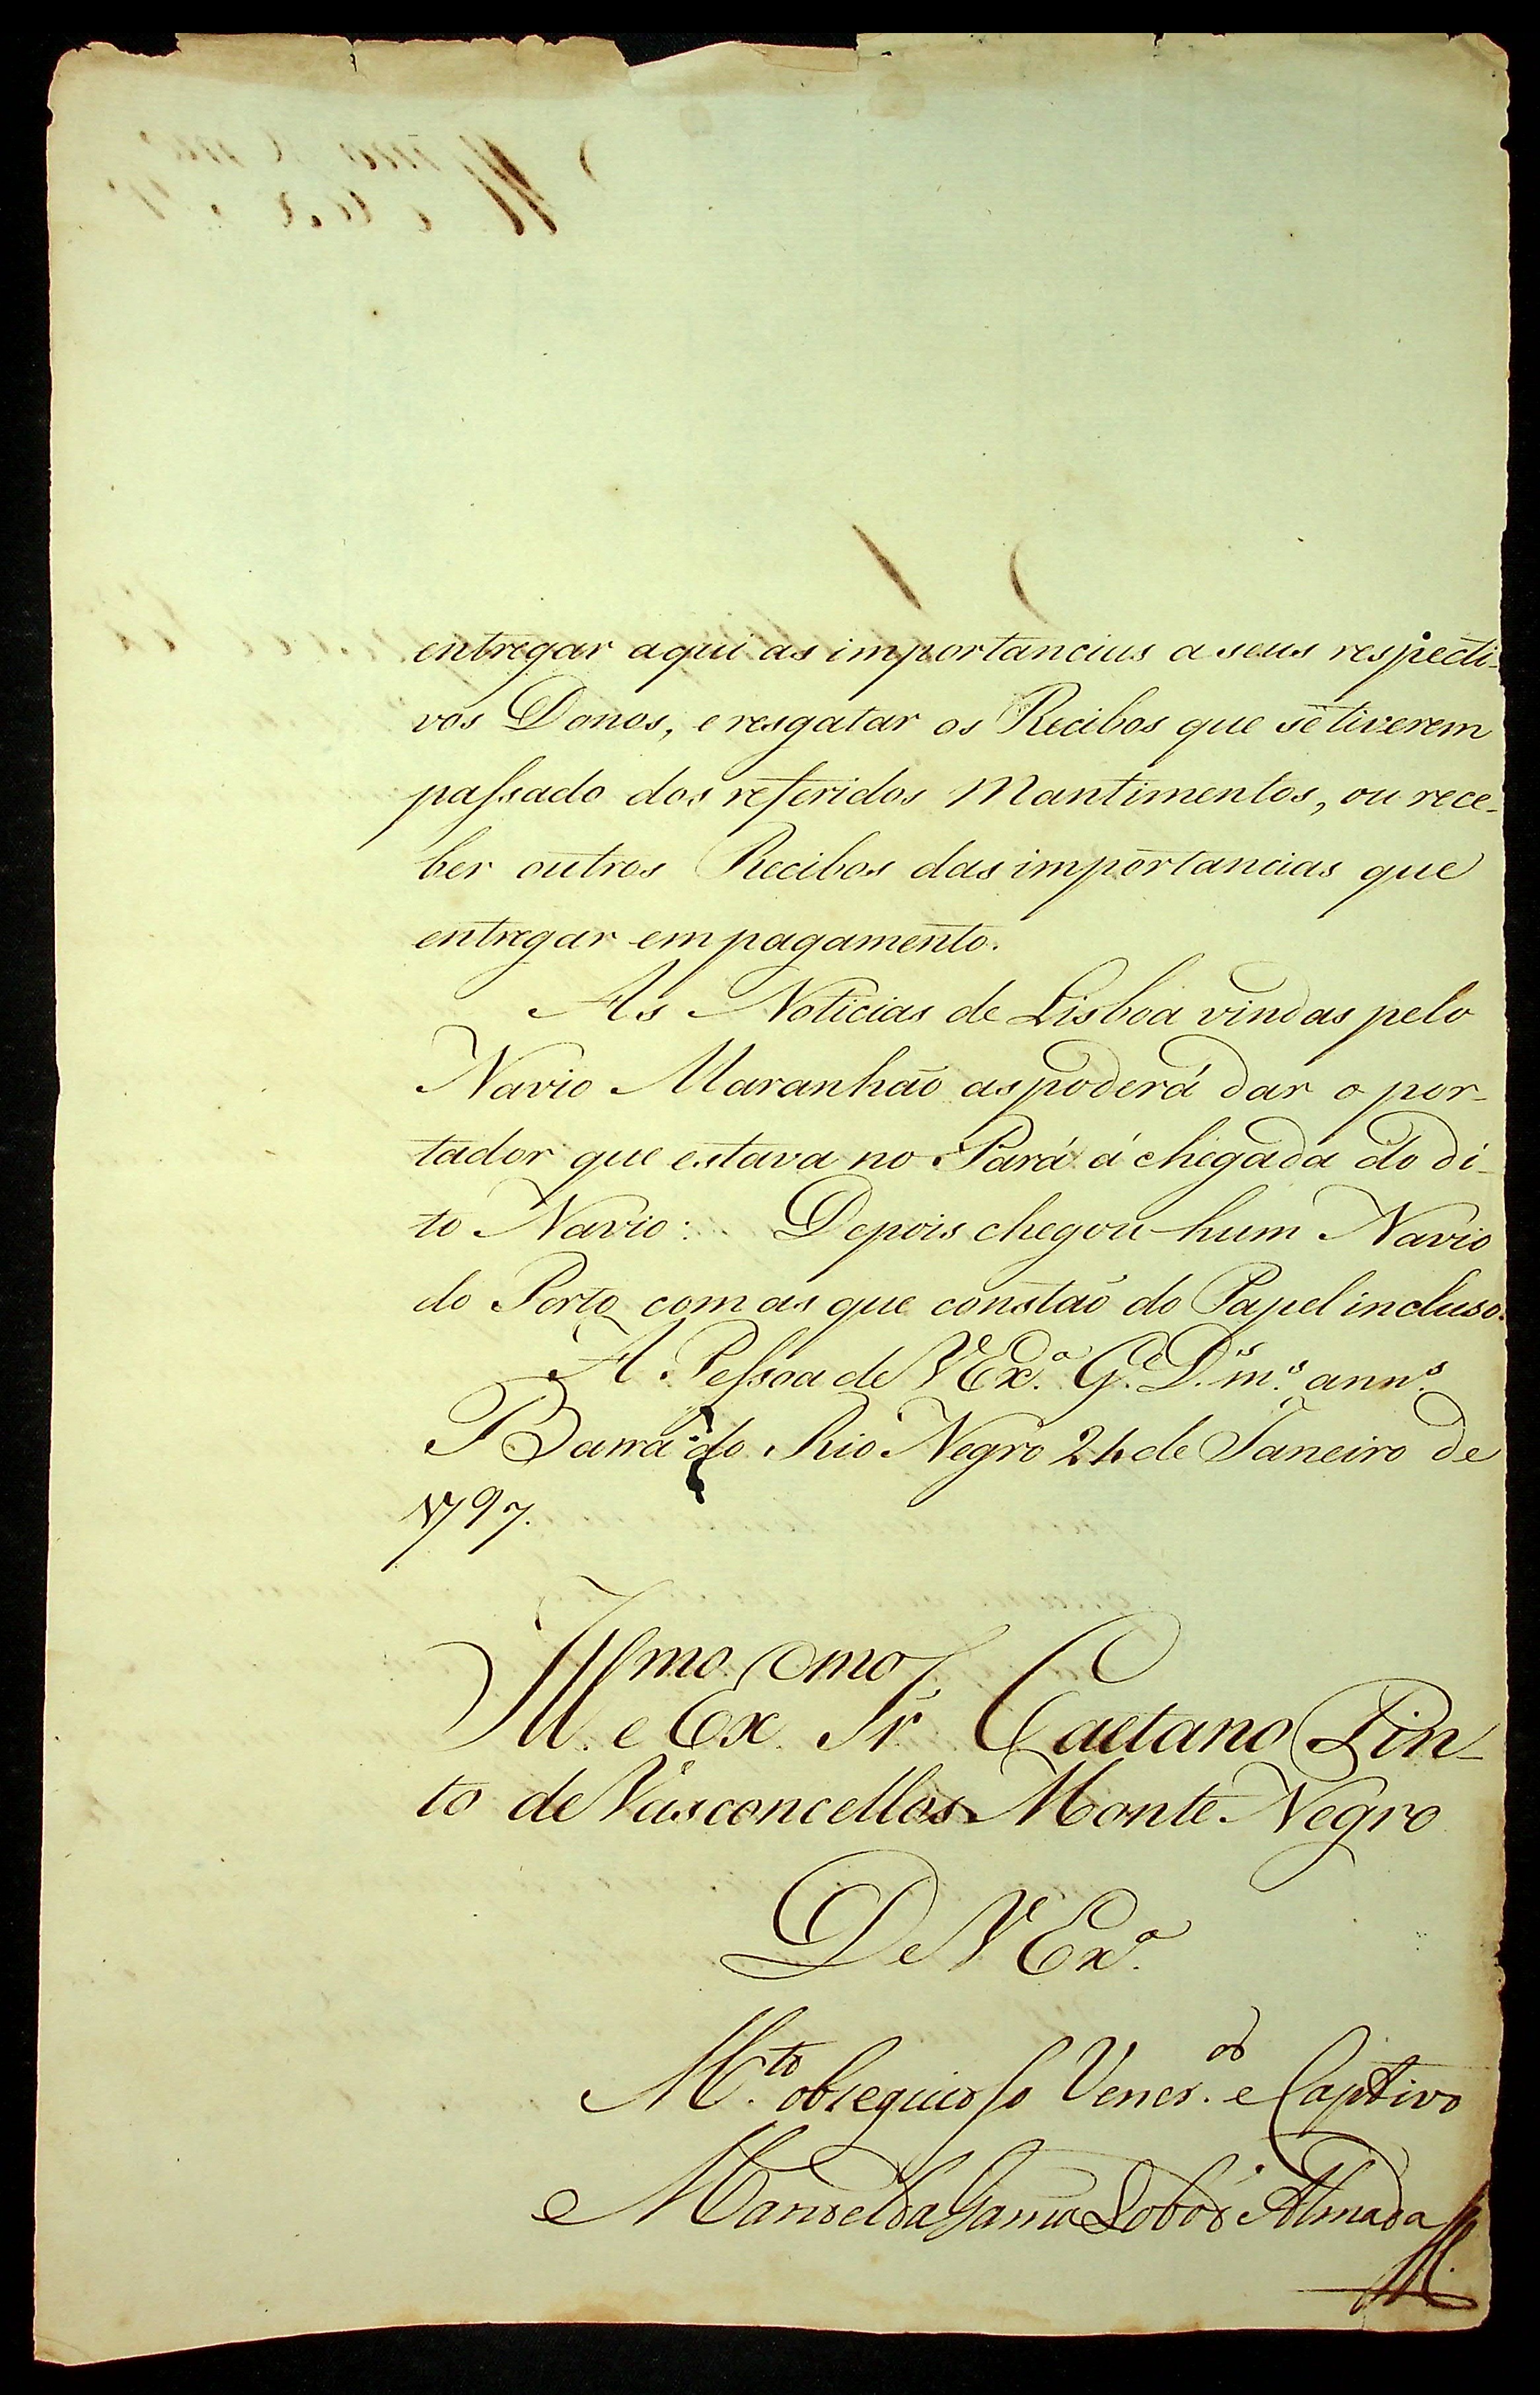 entregar aqui as importancias a seus respecti-
vos Donos, e resgatar os Recibos que se tiverem
passado dos referidos Mantimentos, ou rece-
ber outros Recibos das importancias que
entregar em pagamento.
As Noticias de Lisboa vindas pelo
Navio Maranhão as poderá dar o por-
tador que estava no Pará á chegada do di-
to Navio: Depois chegou hum Navio
do Porto com as que constão do Papel incluso.
A Pessoa de V Ex.ª G.e D.s m.s ann.s
Barra do Rio Negro 24 de Janeiro de
1797.
Ill.mo e Ex.mo Sr. Caetano Pin-
to de Vasconcellos Monte Negro
De V Ex.ª
M.to obsequioso Vener.or e Captivo
Manoel da Gama Lobo d'Almada